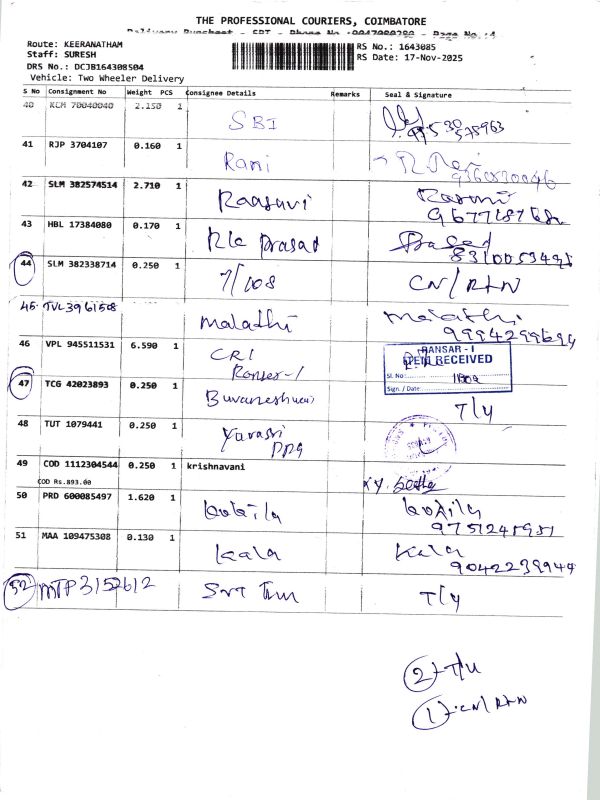 THE PROFESSIONAL COURIERS, COIMBATORE
Delivery Runsheet - EDT - Phone No :0047000200 - Page No.:4
Route: KEERANATHAM
RS No.: 1643085
Staff: SURESH
RS Date: 17-Nov-2025
DRS No.: DCJB164308504
Vehicle: Two Wheeler Delivery
S No Consignment No Weight PCS Consignee Details Remarks Seal & Signature
40 KCM 70040040 2.150 1 SBI
41 RJP 3704107 0.160 1 Rani
42 SLM 382574514 2.710 1
43 HBL 17384080 0.170 1 Prasad Prasad
8310053495
44 SLM 382338714 0.250 1 7/108 CN/RTN
45. TVL3961508
malathi malathi
9994299694
46 VPL 945511531 6.590 1 CRI
Ranser-1
RANSAR - I
RECEIVED
Sl. No:
Sign. / Date:
47 TCG 42023893 0.250 1 Buvaneshwari T/y
48 TUT 1079441 0.250 1
PPG
49 COD 1112304544 0.250 1 krishnavani
COD Rs.893.00
50 PRD 600085497 1.620 1 kokila kokila
51 MAA 109475308 0.130 1 kala kala
9042239944
52 MTP 3152612 T/y
2 - T/y
1 - CN/RTN